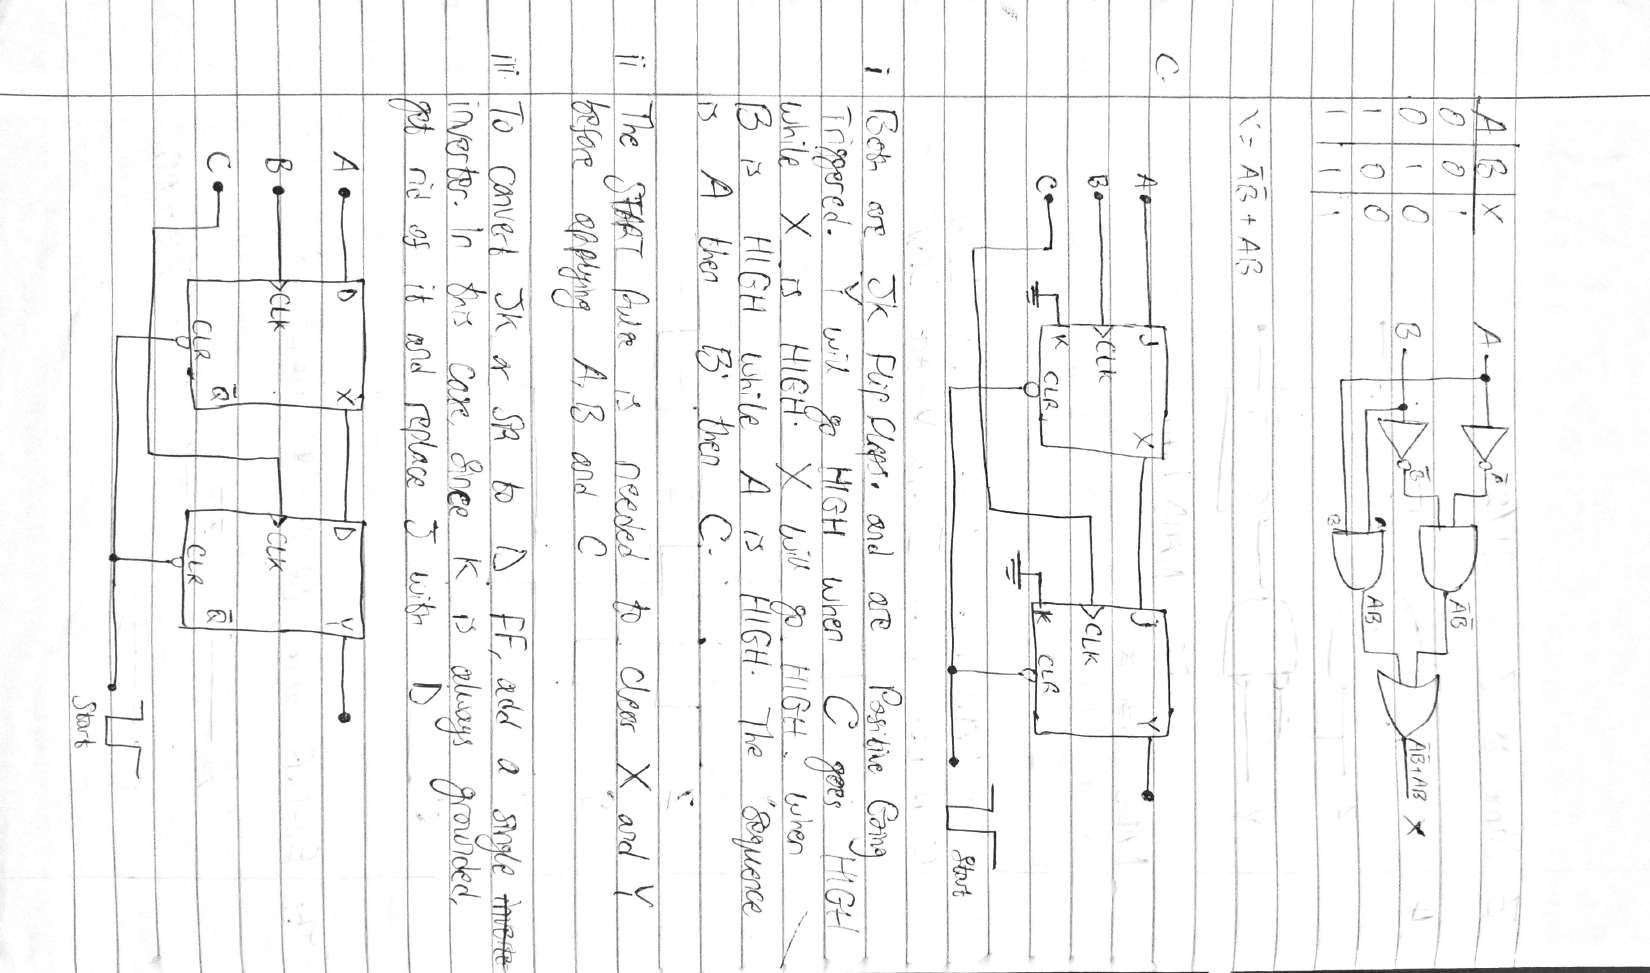 A B X
0 0 1
0 1 0
1 0 0
1 1 1
A
B
A̅
B̅
B
A̅B̅
AB
A̅B̅+AB X
X = A̅B̅ + AB
C.
A
B
C
J
CLK
K
CLR
X
J
CLK
K
CLR
Y
Start
i Both are JK Flip Flops. and are Positive Going
Triggered. Y will go HIGH when C goes HIGH
while X is HIGH. X will go HIGH. when
B is HIGH while A is HIGH. The sequence
is A then B then C.
ii The START Pulse is needed to clear X and Y
before applying A, B and C
iii. To convert JK or SR to D FF, add a single inverte
inverter. In this case, Since K is always grounded,
get rid of it and replace J with D
A
B
C
D
CLK
CLR
X
Q̅
D
CLK
CLR
Y
Q̅
Start